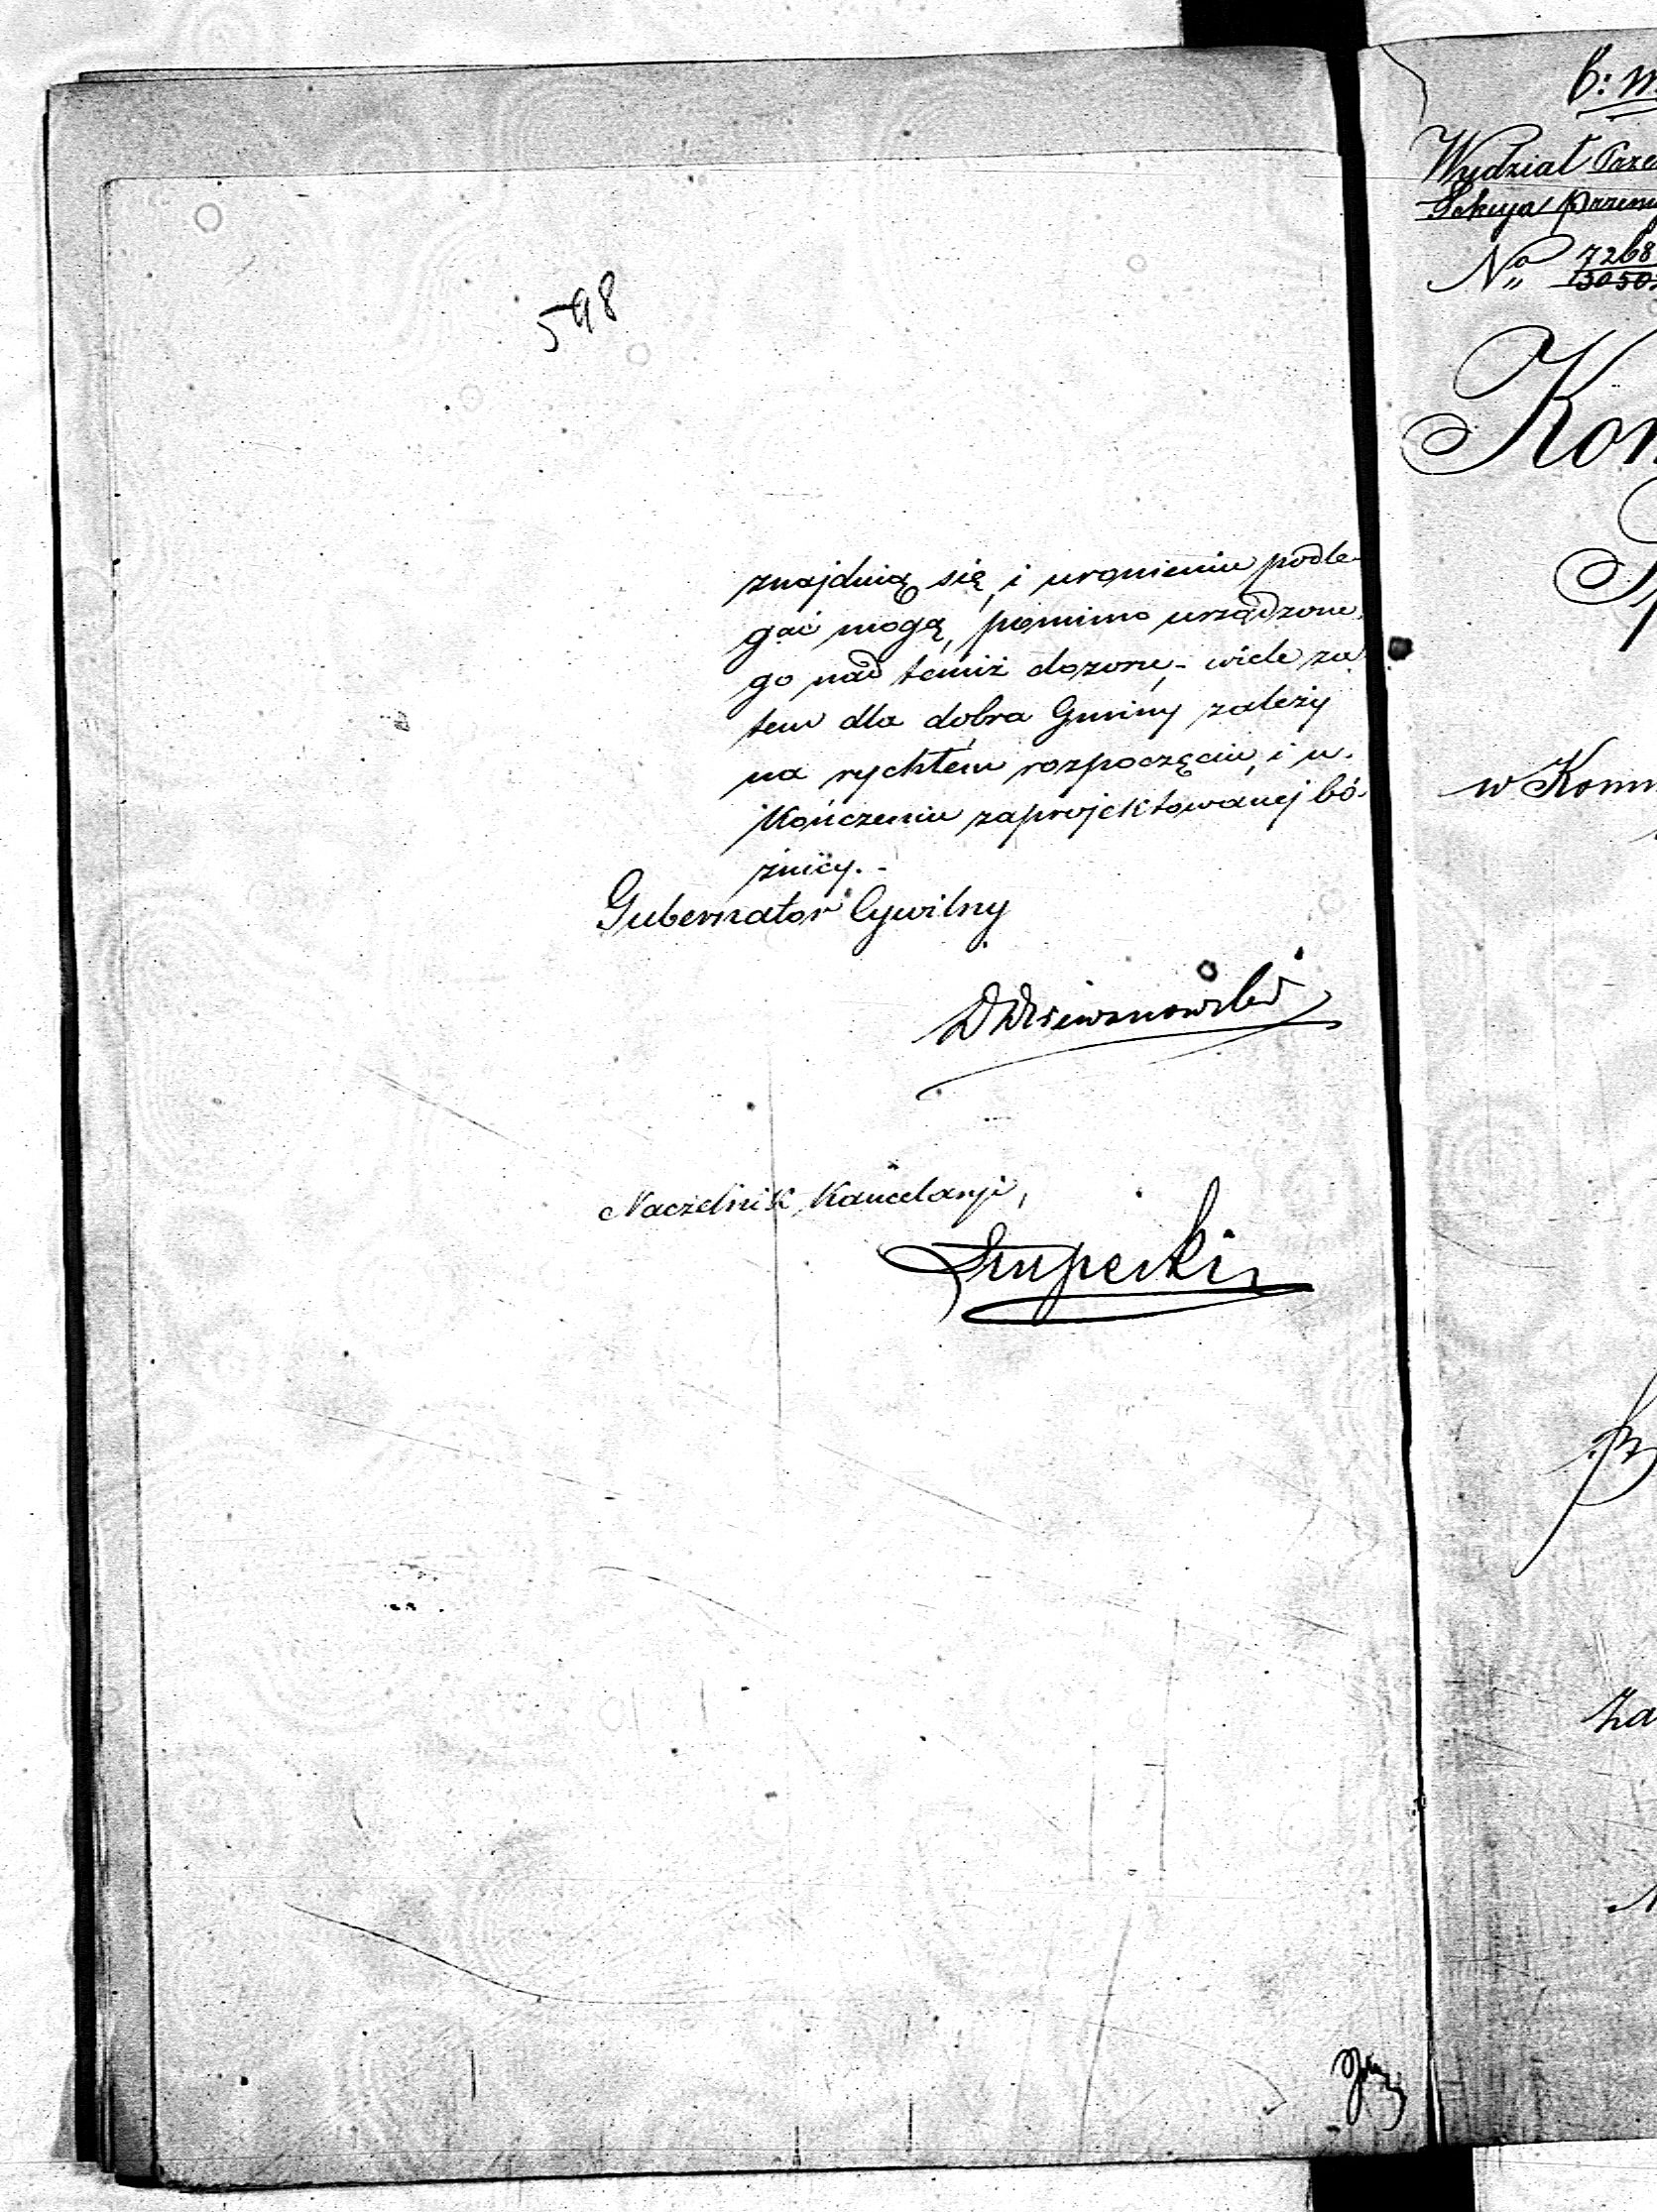 598
znajdują się, i uronieniu podle-
gać mogą, pomimo urządzone-
go nad temiż dozoru, - wiele za-
tem dla dobra Gminy zależy
na rychłem rozpoczęciu, i u-
kończeniu zaprojektowanej bó-
żnicy. -
Gubernator Cywilny
Naczelnik Kancelaryi,
b: m.
Wydział
Sekcya Przemy
No 7268
w Komm
Za